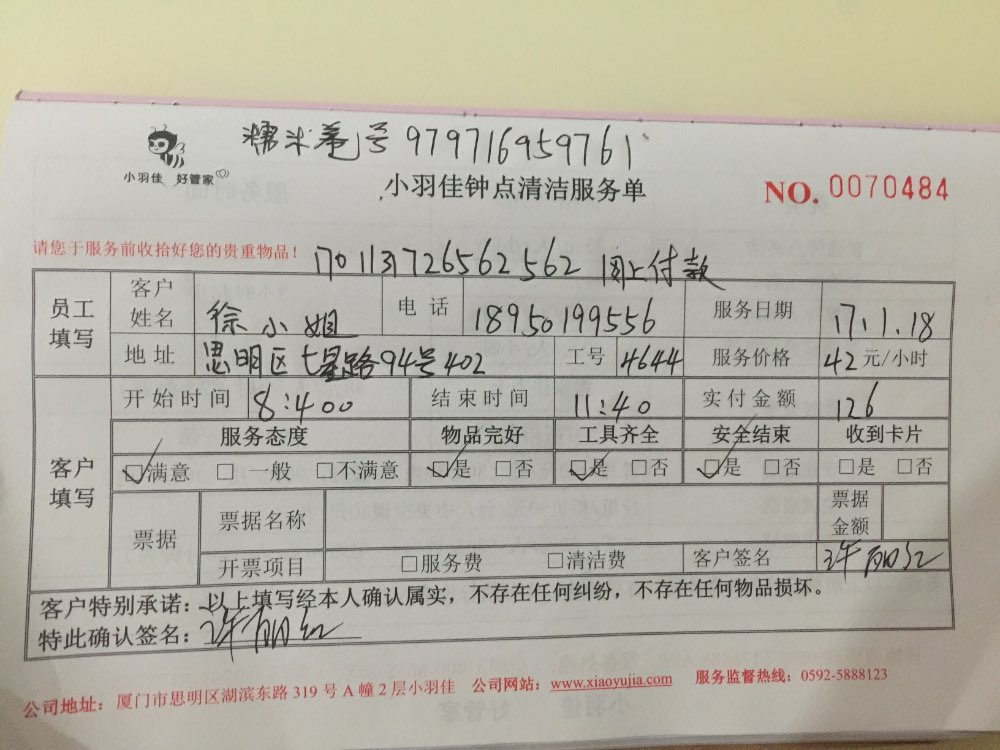 糯米卷号 979716959761
小羽佳 好管家
小羽佳钟点清洁服务单
NO. 0070484
请您于服务前收拾好您的贵重物品！
1701131726562562 网上付款
员工填写
客户姓名 徐小姐 电话 18950199556 服务日期 17.1.18
地址 思明区七星路94号402 工号 4644 服务价格 42元/小时
客户填写
开始时间 8:400 结束时间 11:40 实付金额 126
服务态度 物品完好 工具齐全 安全结束 收到卡片
☑满意 □一般 □不满意 ☑是 □否 ☑是 □否 ☑是 □否 □是 □否
票据 票据名称 票据金额
开票项目 □服务费 □清洁费 客户签名 许丽红
客户特别承诺：以上填写经本人确认属实，不存在任何纠纷，不存在任何物品损坏。
特此确认签名：许丽红
公司地址：厦门市思明区湖滨东路 319 号 A 幢 2 层小羽佳 公司网站：www.xiaoyujia.com 服务监督热线：0592-5888123